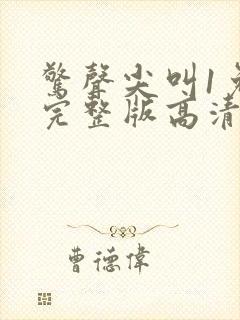 驚聲尖叫1
完整版高清
曹德偉